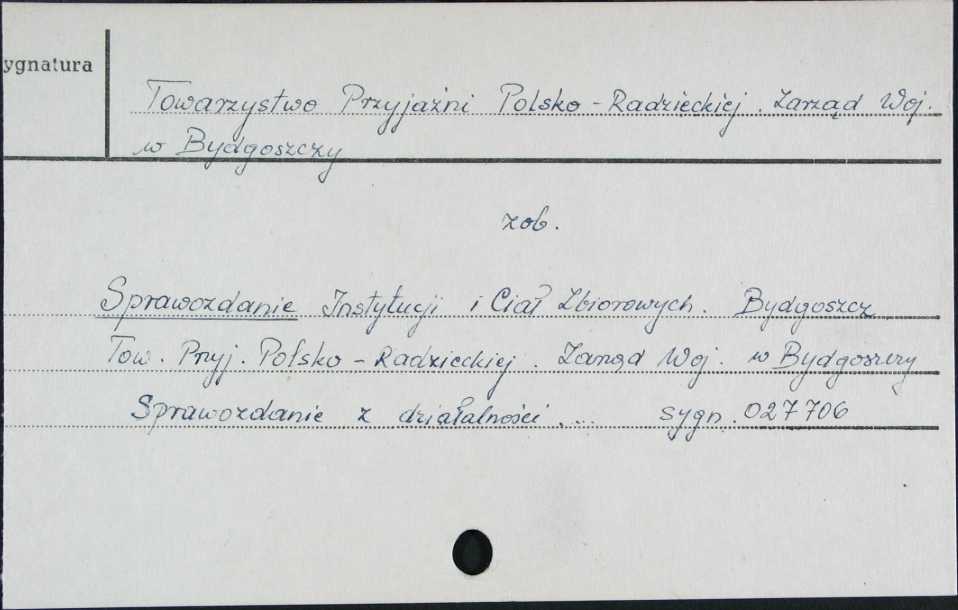 ygnatura
Towarzystwo Przyjaźni Polsko-Radzieckiej. Zarząd Woj.
w Bydgoszczy
zob.
Sprawozdanie Instytucji i Ciał Zbiorowych. Bydgoszcz
Tow. Przyj. Polsko-Radzieckiej. Zarząd Woj. w Bydgoszczy
Sprawozdanie z działalności.... sygn. 027706